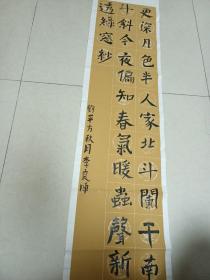 更深月色半人家北斗闌干南
斗斜今夜偏知春氣暖蟲聲新
透綠窗紗
劉平方秋月李良